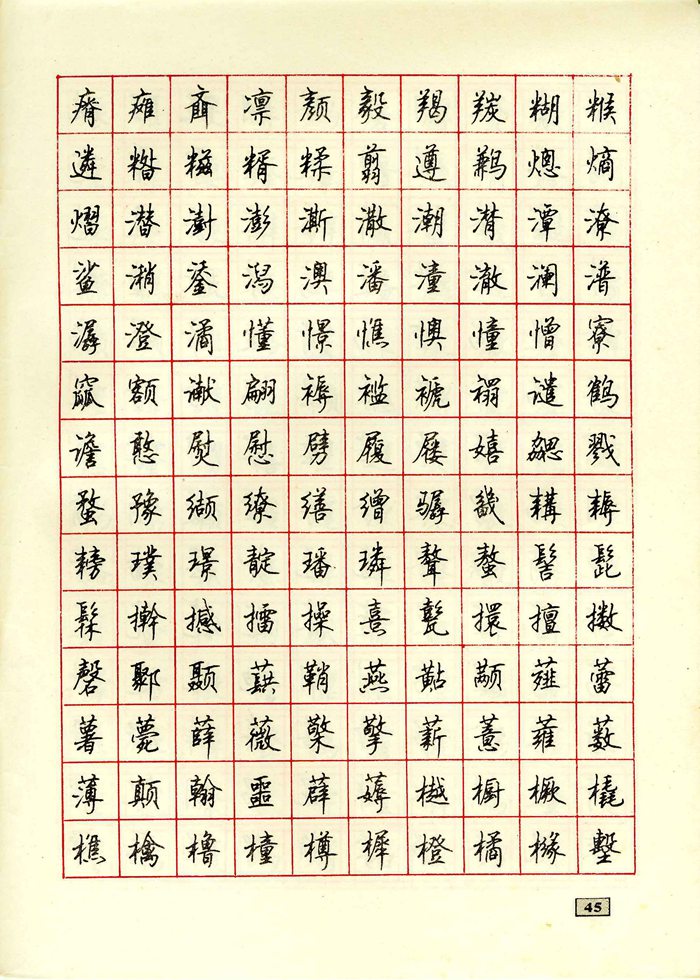 瘠瘫齑凛颜毅羯羰糊糇
遴糌糍糈糅翦遵鹣熜熵
熠潜澍澎澌潵潮潸潭潦
鲨潲鋈潟澳潘潼澈澜潽
潺澄潏懂憬憔懊憧憎寮
窳额谳翩褥褴褫禤谴鹤
谵憨熨慰劈履屦嬉勰戮
蝥豫缬缭缮缯骣畿耩耨
耪璞璟靛璠璘聱螯髻髭
髹擀撼擂操熹甏擐擅擞
磬鄹颞蕻鞘燕黇颟薤蕾
薯薨薛薇檠擎薪薏蕹薮
薄颠翰噩薜薅樾橱橛橇
樵檎橹橦樽樨橙橘橼墼
45